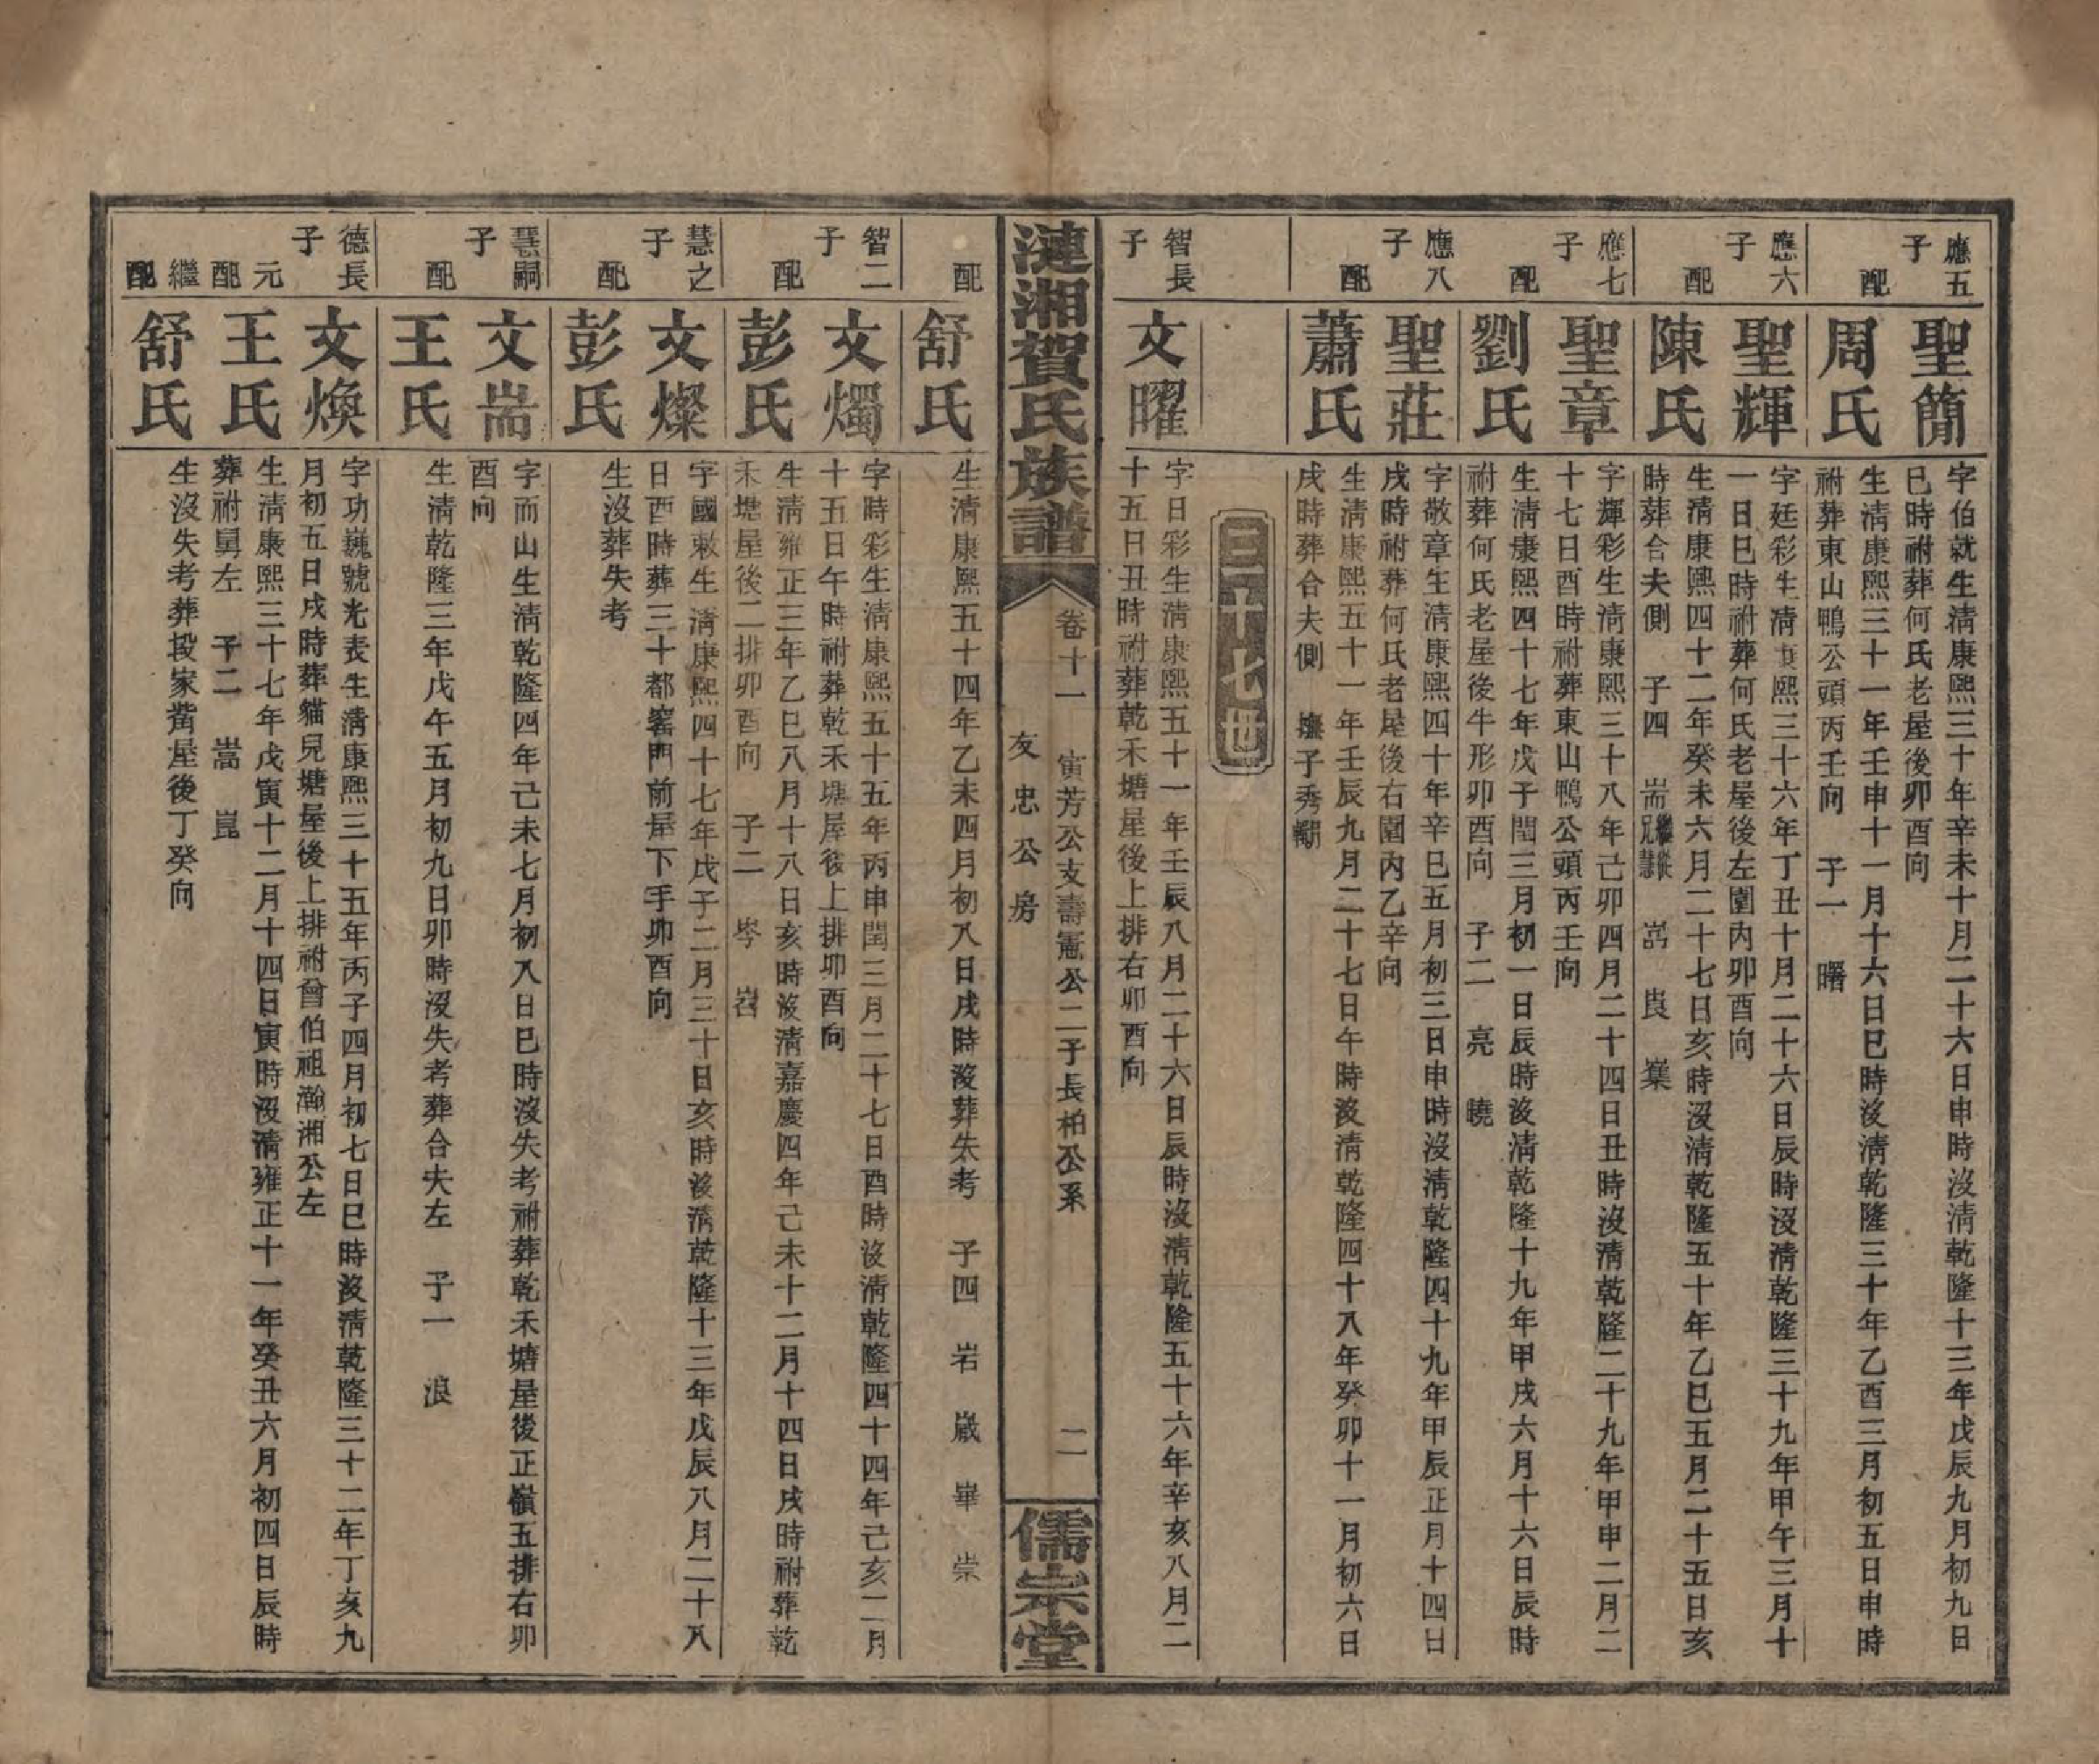 應五子
聖簡
字伯就生清康熙三十年辛未十月二十六日申時沒清乾隆十三年戊辰九月初九日
巳時祔葬何氏老屋後卯酉向
配
周氏
生清康熙三十一年壬申十一月十六日巳時沒清乾隆三十年乙酉三月初五日申時
祔葬東山鴨公頭丙壬向 子一 曙
應六子
聖輝
字廷彩生清康熙三十六年丁丑十月二十六日辰時沒清乾隆三十九年甲午三月十
一日巳時祔葬何氏老屋後左園內卯酉向
配
陳氏
生清康熙四十二年癸未六月二十七日亥時沒清乾隆五十年乙巳五月二十五日亥
時葬合夫側 子四 耑 繼從兄慧 嵩 良 業
應七子
聖章
字輝彩生清康熙三十八年己卯四月二十四日丑時沒清乾隆二十九年甲申二月二
十七日酉時祔葬東山鴨公頭丙壬向
配
劉氏
生清康熙四十七年戊子閏三月初一日辰時沒清乾隆十九年甲戌六月十六日辰時
祔葬何氏老屋後牛形卯酉向 子二 亮 曉
應八子
聖莊
字敬章生清康熙四十年辛巳五月初三日申時沒清乾隆四十九年甲辰正月十四日
戌時祔葬何氏老屋後右園內乙辛向
配
蕭氏
生清康熙五十一年壬辰九月二十七日午時沒清乾隆四十八年癸卯十一月初六日
戌時葬合夫側 撫子秀
三十七世
智長子
文曜
字日彩生清康熙五十一年壬辰八月二十六日辰時沒清乾隆五十六年辛亥八月二
十五日丑時祔葬乾禾塘屋後上排右卯酉向
漣湘賀氏族譜
卷十一 寅芳公支壽憲公二子長柏公系
友忠公房
二
儒宗堂
配
舒氏
生清康熙五十四年乙未四月初八日戌時沒葬失考 子四 岩 嵗 崋 崇
智二子
文燭
字時彩生清康熙五十五年丙申閏三月二十七日酉時沒清乾隆四十四年己亥二月
十五日午時祔葬乾禾塘屋後上排卯酉向
配
彭氏
生清雍正三年乙巳八月十八日亥時沒清嘉慶四年己未十二月十四日戌時祔葬乾
禾塘屋後二排卯酉向 子二 岑 岧
慧之子
文燦
字國敕生清康熙四十七年戊子二月三十日亥時沒清乾隆十三年戊辰八月二十八
日酉時葬三十都窰門前屋下手卯酉向
配
彭氏
生沒葬失考
慧嗣子
文耑
字而山生清乾隆四年己未七月初八日巳時沒失考祔葬乾禾塘屋後正嶺五排右卯
酉向
配
王氏
生清乾隆三年戊午五月初九日卯時沒失考葬合夫左 子一 浪
德長子
文煥
字功巍號光表生清康熙三十五年丙子四月初七日巳時沒清乾隆三十二年丁亥九
月初五日戌時葬貓兒塘屋後上排祔曾伯祖瀚湘公左
元配
王氏
生清康熙三十七年戊寅十二月十四日寅時沒清雍正十一年癸丑六月初四日辰時
葬祔舅左 子二 嵩 崑
繼配
舒氏
生沒失考葬段家嘴屋後丁癸向